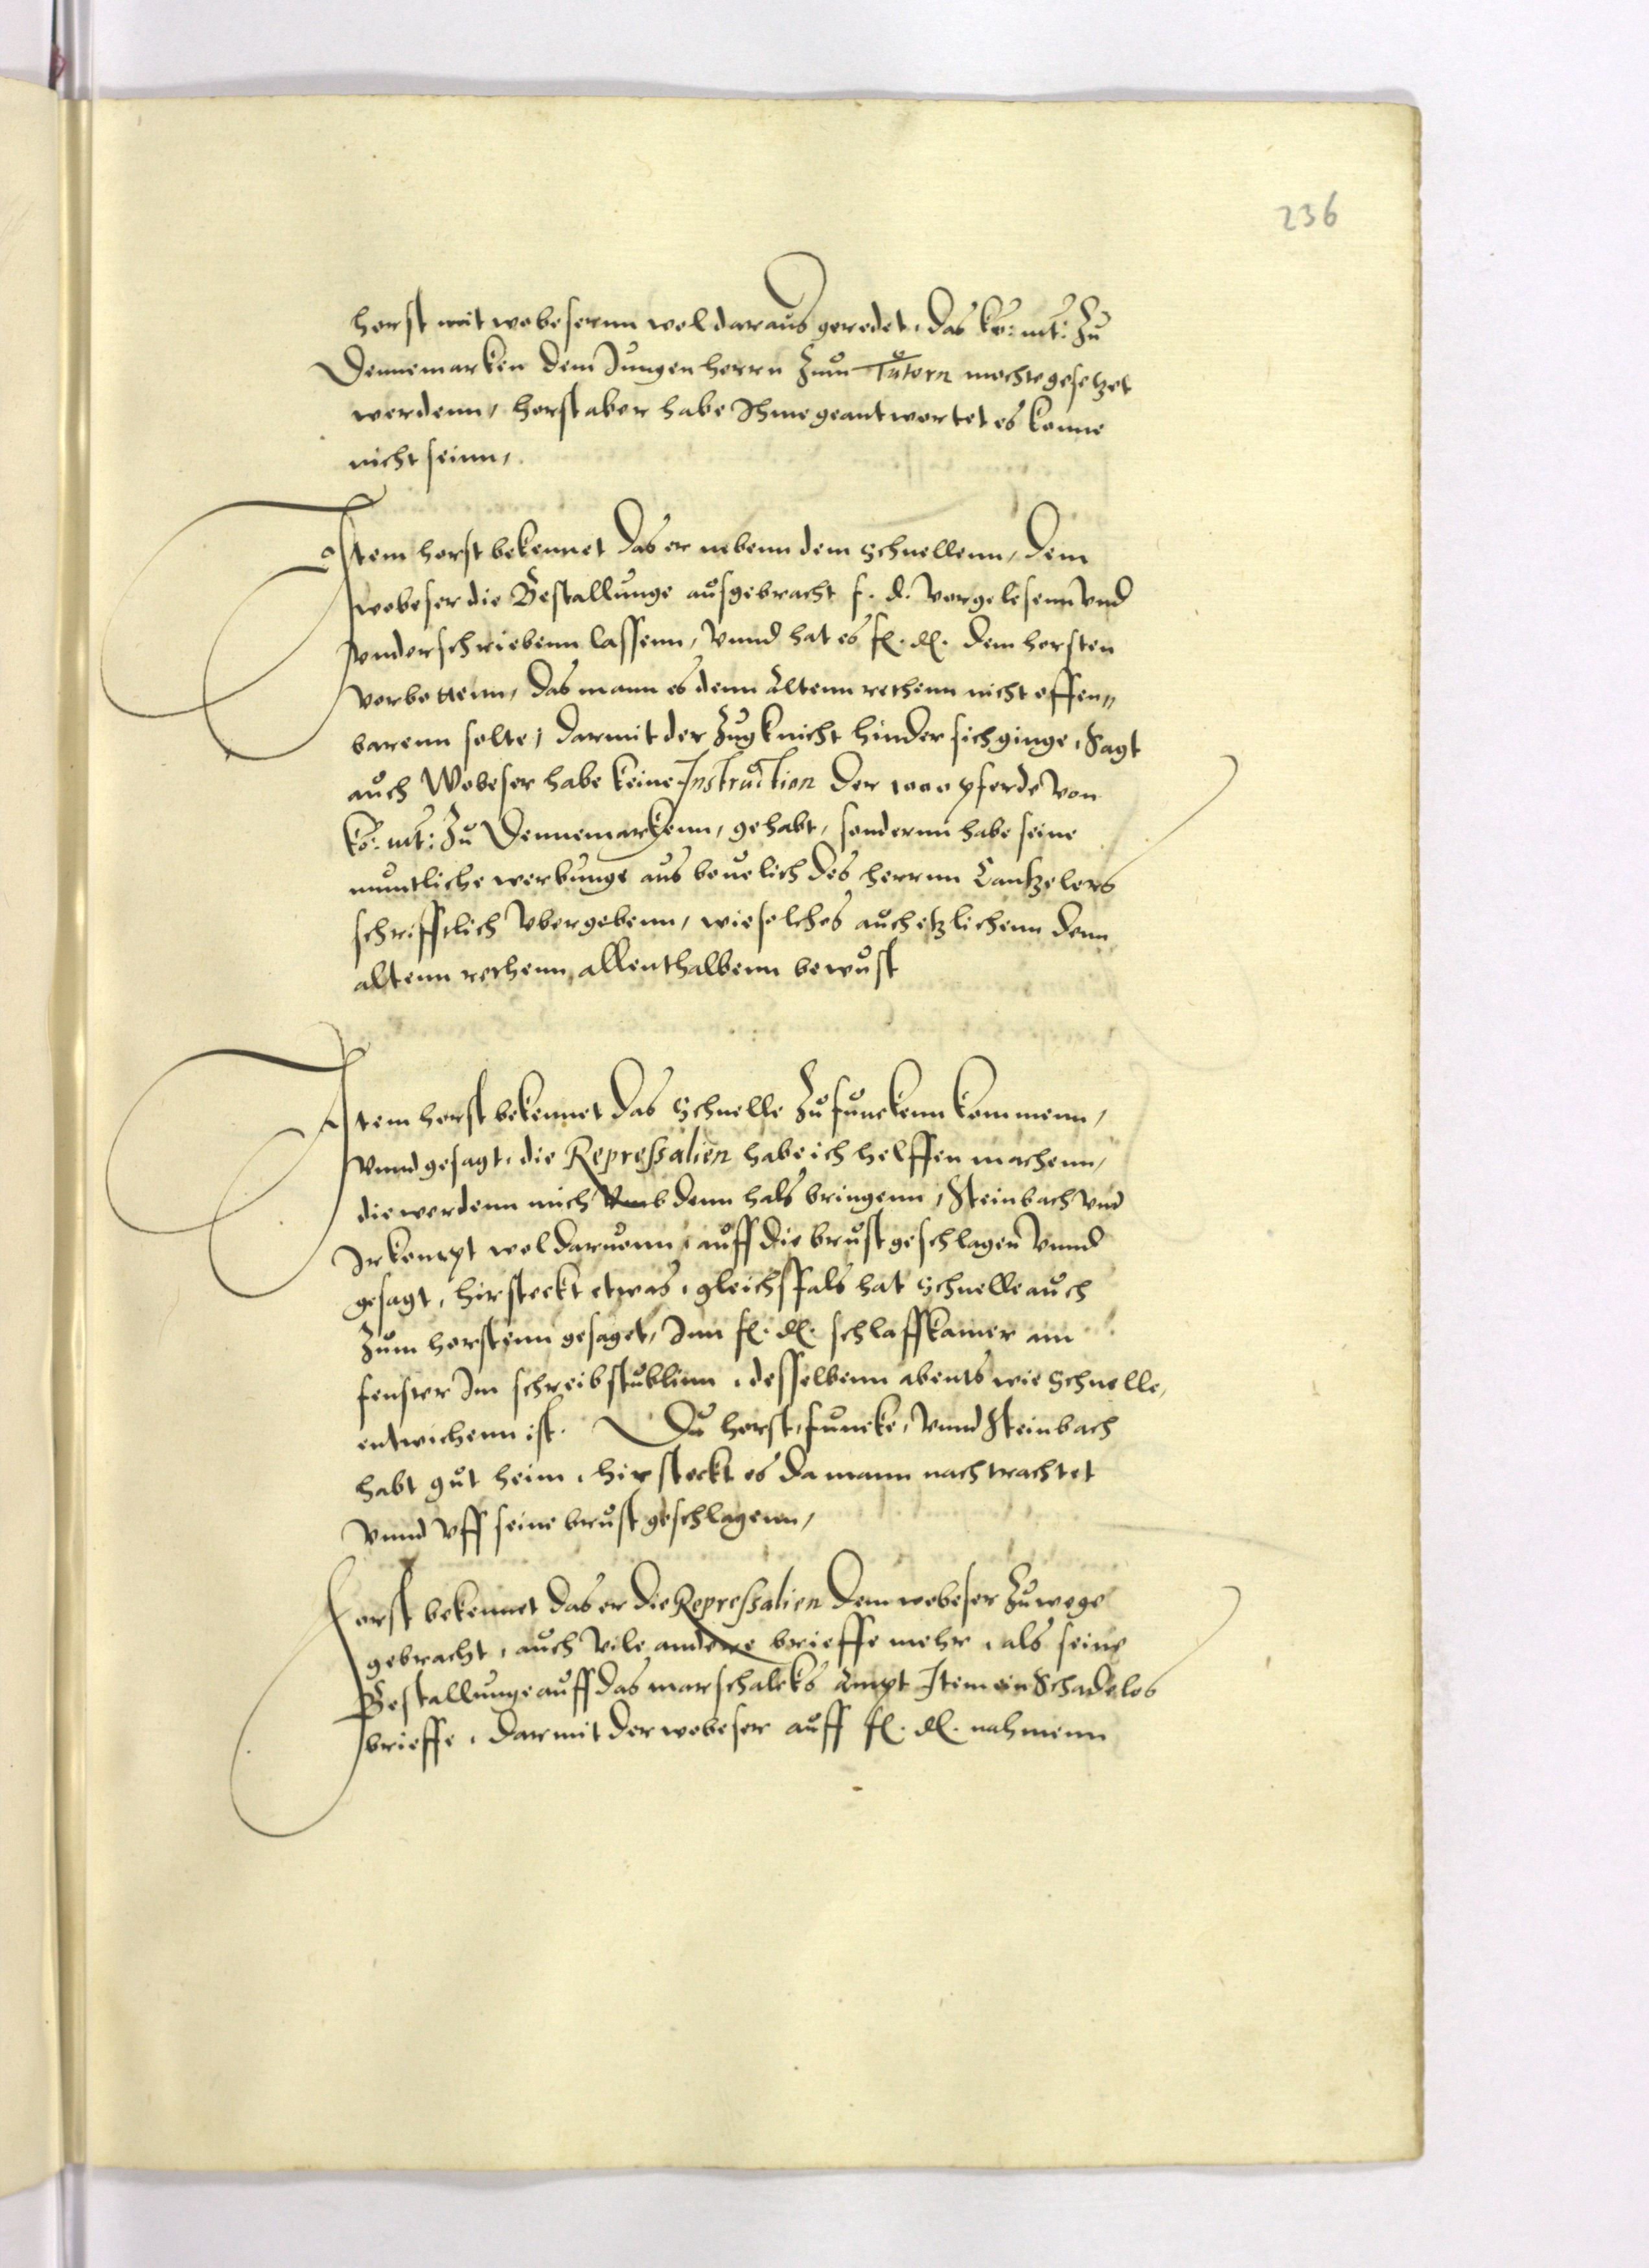 236
horst mit wobesernn wol daraus geredet, das ko: mt: zu
Dennemarken dem Jungen herrn zum Tutorn mochte gesetzet
werdenn, horst aber habe Ihme geantwortet es konne
nicht seinn,
Item horst bekennet das er nebenn dem Schnellenn, dem
wobeser die Bestallunge ausgebracht f. d. vorgelesenn vnd
vnderschriebenn lassenn, vnnd hat es fl. dl. dem horsten
verbottenn, das mann es denn Altenn rethenn nicht offen„
barenn solte, darmit der Zugk nicht hinder sich ginge, Sagt
auch Wobeser habe keine Instruction der 1000 pferde von
ko: mt: zu Dennemarkenn, gehabt, sondernn habe seine
muntliche werbunge aus beuelich des herrnn Cantzelers
schrifftlich vbergebenn, wie solches auch etzlichenn denn
altenn rethenn allenthalbenn bewust
Item horst bekennet das Schnelle zu funckenn kommenn,
vnnd gesagt, die Repressalien habe ich helffen machenn,
die werdenn mich vmb denn hals bringenn, Steinbach vnd
Ir kompt wol daruonn, auff die brust geschlagen vnnd
gesagt, hir steckt etwas, gleichsfals hat Schnelle auch
zum horstenn gesaget, Inn fl. dl. schlaffkamer am
fenster Im schreibstublinn, desselbenn abents wie Schnelle,
entwichenn ist. Du horst, funcke, vnnd Steinbach
habt gut heim, hir steckt es da mann nach trachtet
vnnd vff seine brust geschlagenn,
Horst bekennet das er die Repressalien dem wobeser zuwege
gebracht, auch vile andere brieffe mehr, als seine
Bestallunge auff das marschalcks Ampt Item ein Schadelos
brieffe, darmit der wobeser auff fl. dl. nahmenn